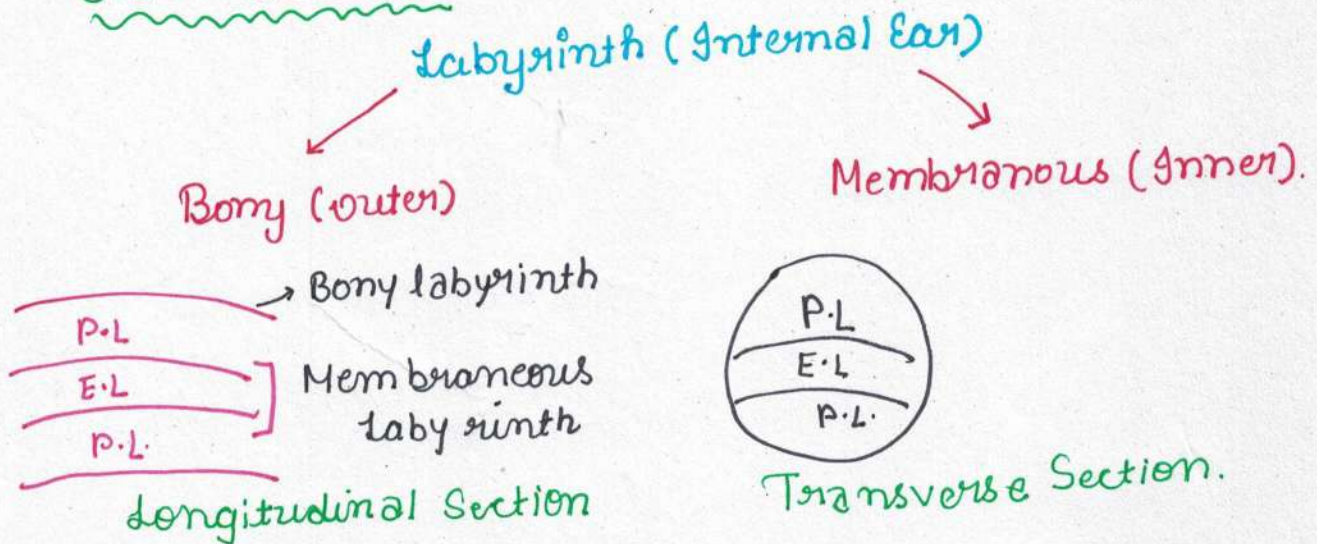 Labyrinth (Internal Ear)
Bony (outer)
Membranous (Inner).
Bony labyrinth
P.L
E.L
P.L.
Membraneous
Labyrinth
Longitudinal Section
P.L
E.L
P.L.
Transverse Section.